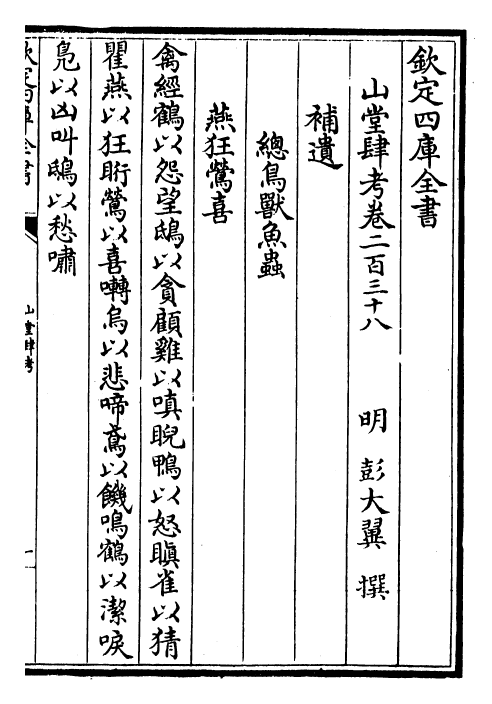 欽定四庫全書
山堂肆考卷二百三十八　　明　彭大翼　撰
補遺
總鳥獸魚蟲
燕狂鶯喜
禽經鶴以怨望鴟以貪顧雞以嗔睨鴨以怒瞋雀以猜
瞿燕以狂盻鶯以喜囀烏以悲啼鳶以饑鳴鶴以潔唳
鳧以凶叫鴟以愁嘯
欽定四庫全書
山堂肆考
一